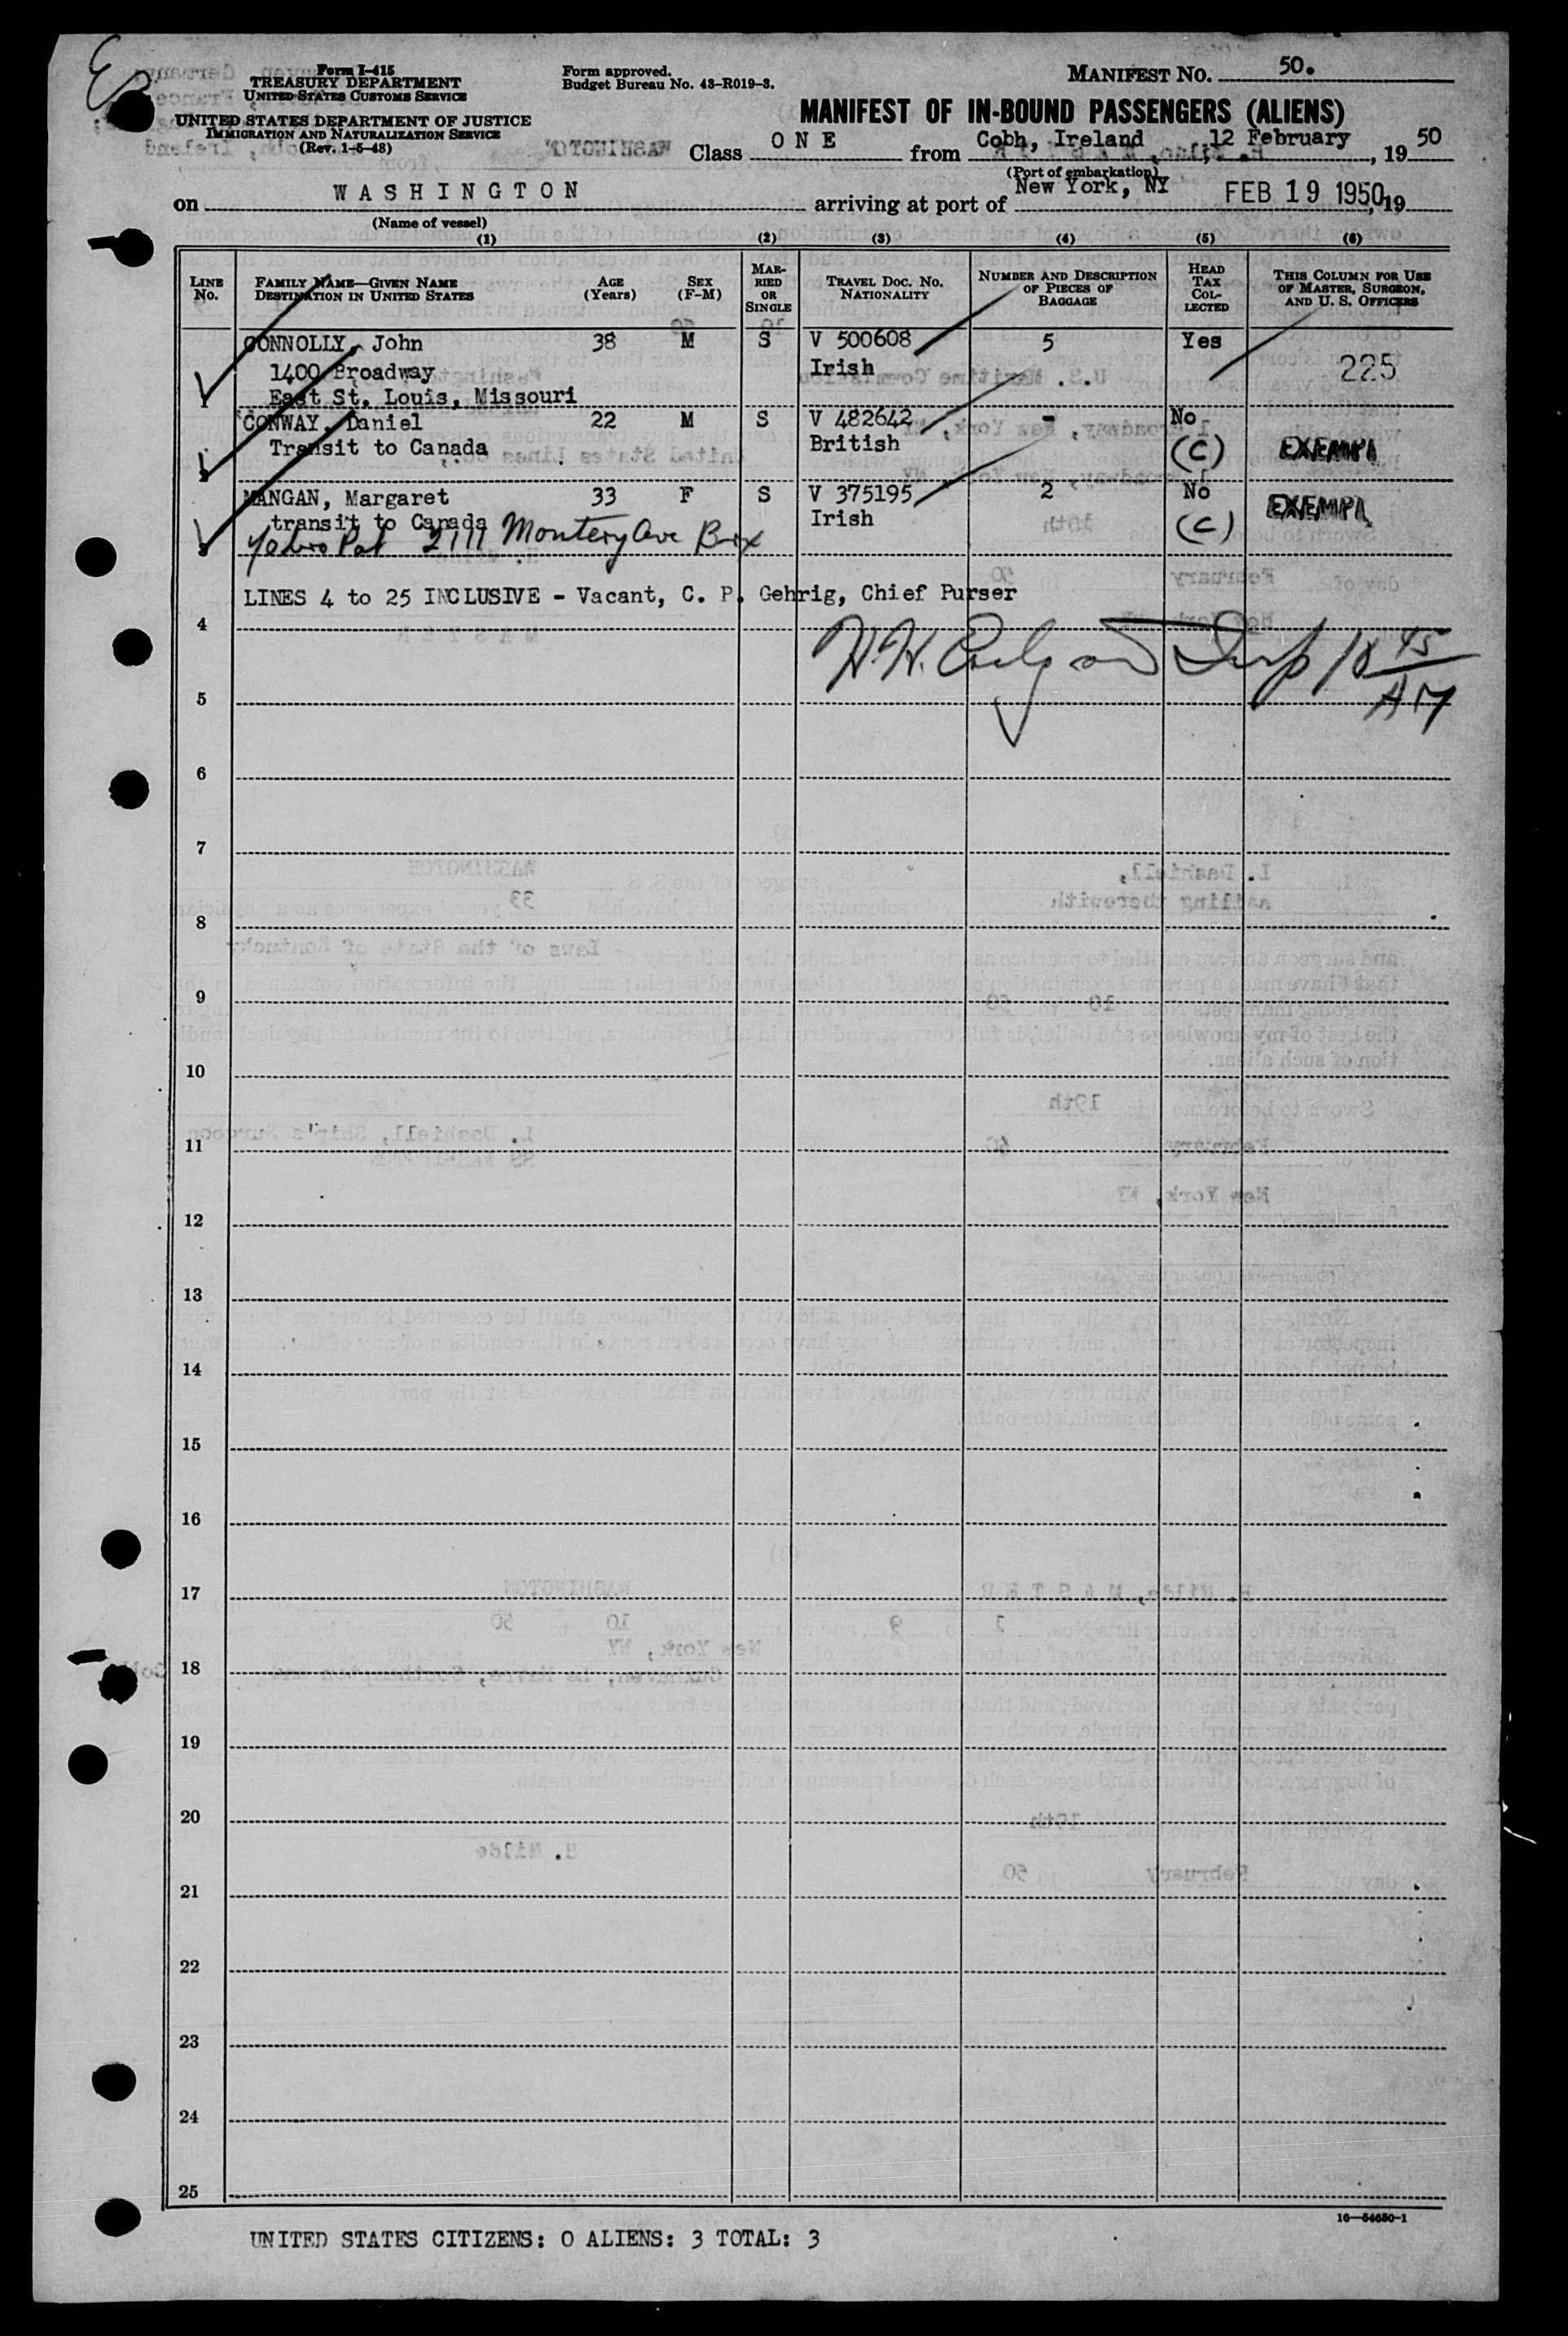 Form I-415
TREASURY DEPARTMENT
UNITED STATES CUSTOMS SERVICE
UNITED STATES DEPARTMENT OF JUSTICE
IMMIGRATION AND NATURALIZATION SERVICE
(Rev. 1-5-48)
Form approved.
Budget Bureau No. 43-R019-3.
MANIFEST NO. 50.
MANIFEST OF IN-BOUND PASSENGERS (ALIENS)
Class O N E from Cobh, Ireland 12 February, 19 50
(Port of embarkation)
on W A S H I N G T O N arriving at port of New York, NY FEB 19 1950, 19
(Name of vessel)
(1) (2) (3) (4) (5) (6)
LINE No. FAMILY NAME—GIVEN NAME DESTINATION IN UNITED STATES AGE (Years) SEX (F-M) MARRIED OR SINGLE TRAVEL DOC. NO. NATIONALITY NUMBER AND DESCRIPTION OF PIECES OF BAGGAGE HEAD TAX COLLECTED THIS COLUMN FOR USE OF MASTER, SURGEON, AND U. S. OFFICERS
CONNOLLY, John 38 M S V 500608 5 Yes
1400 Broadway Irish 225
1 East St. Louis, Missouri
CONWAY, Daniel 22 M S V 482642 - No
2 Transit to Canada British (C) EXEMPT
MANGAN, Margaret 33 F S V 375195 2 No
transit to Canada Irish (C) EXEMPT
3 Pat 2111 Montery Ave Brx
LINES 4 to 25 INCLUSIVE - Vacant, C. P. Gehrig, Chief Purser
4
H.H. Insp 10 45/AM
5
6
7
8
9
10
11
12
13
14
15
16
17
18
19
20
21
22
23
24
25
16—54650-1
UNITED STATES CITIZENS: 0 ALIENS: 3 TOTAL: 3